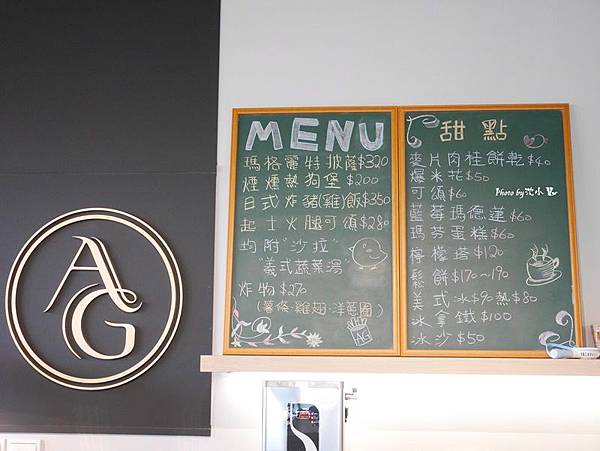 AG
MENU
瑪格麗特披薩$320
煙燻熱狗堡$200
日式炸豬(雞)飯$350
起士火腿可頌$280
均附"沙拉"
"義式蔬菜湯"
炸物$270
(薯條·雞翅·洋蔥圈)
AG
甜點
麥片肉桂餅乾$40
爆米花$50
可頌$60
藍莓瑪德蓮$60
瑪芬蛋糕$60
檸檬塔$120
鬆餅$170~190
美式冰$90熱$80
冰拿鐵$100
冰沙$50
Photo by